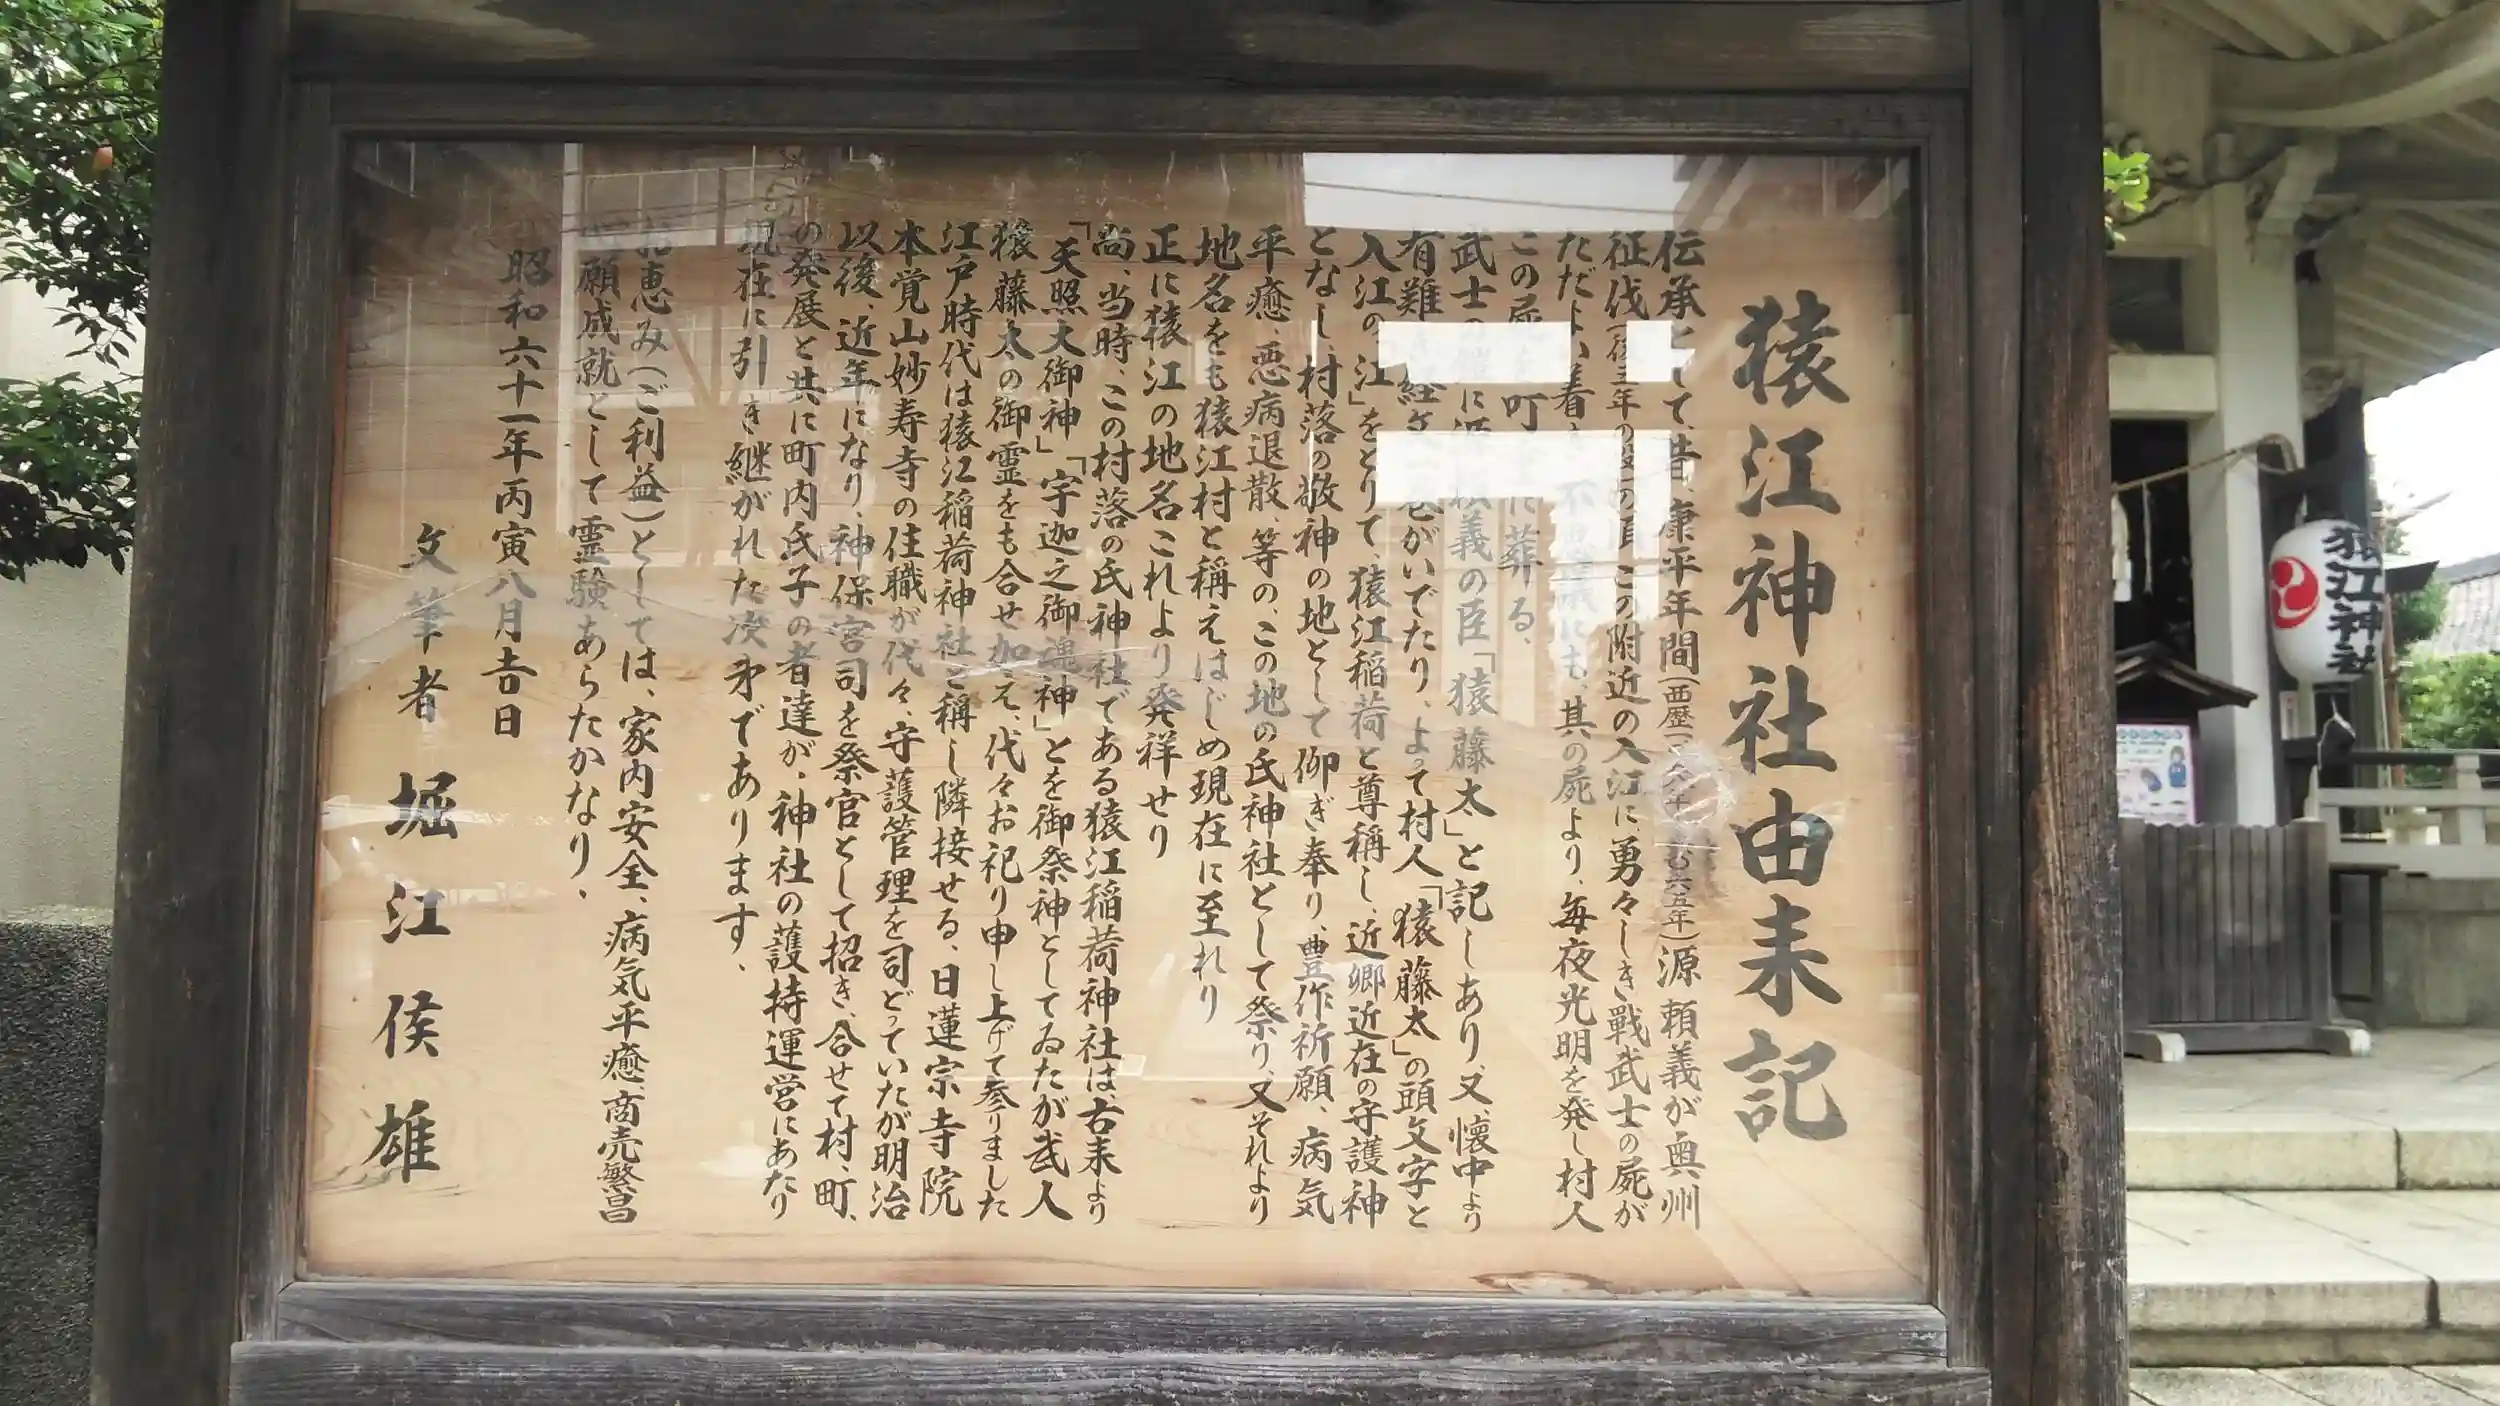 猿江神社由来記
伝承として、昔、康平年間(西歴 六五年)源頼義が奥州
征伐(後三年の役)の頃この附近の入江に、勇々しき戦武士の屍が
ただよい着き 不思議にも、其の屍より、毎夜光明を発し村人
この屍を 町 に葬る、
武士の に源 義の臣「猿藤太」と記しあり又、懐中より
有難き経文 巻がいでたり、よって村人「猿藤太」の頭文字と
入江の「江」をとりて、猿江稲荷と尊称し、近郷近在の守護神
となし、村落の敬神の地として仰ぎ奉り、豊作祈願、病気
平癒、悪病退散、等の、この地の氏神社として祭り、又それより
地名をも猿江村と稱えはじめ現在に至れり
正に猿江の地名これより発祥せり
尚、当時、この村落の氏神社である猿江稲荷神社は、古来より
「天照大御神」「宇迦之御魂神」とを御祭神としてゐたが武人
猿藤太の御霊をも合せ加え、代々お祀り申し上げて参りました
江戸時代は猿江稲荷神社と稱し隣接せる、日蓮宗寺院
本覚山妙寿寺の住職が代々、守護管理を司どっていたが明治
以後、近年になり、神保宮司を祭官として招き、合せて村、町、
の発展と共に町内氏子の者達が、神社の護持運営にあたり
現在に引き継がれた次第であります、
お恵み(ご利益)としては、家内安全、病気平癒、商売繁昌
願成就として霊験あらたかなり、
昭和六十一年丙寅八月吉日
文筆者 堀江侯雄
猿江神社